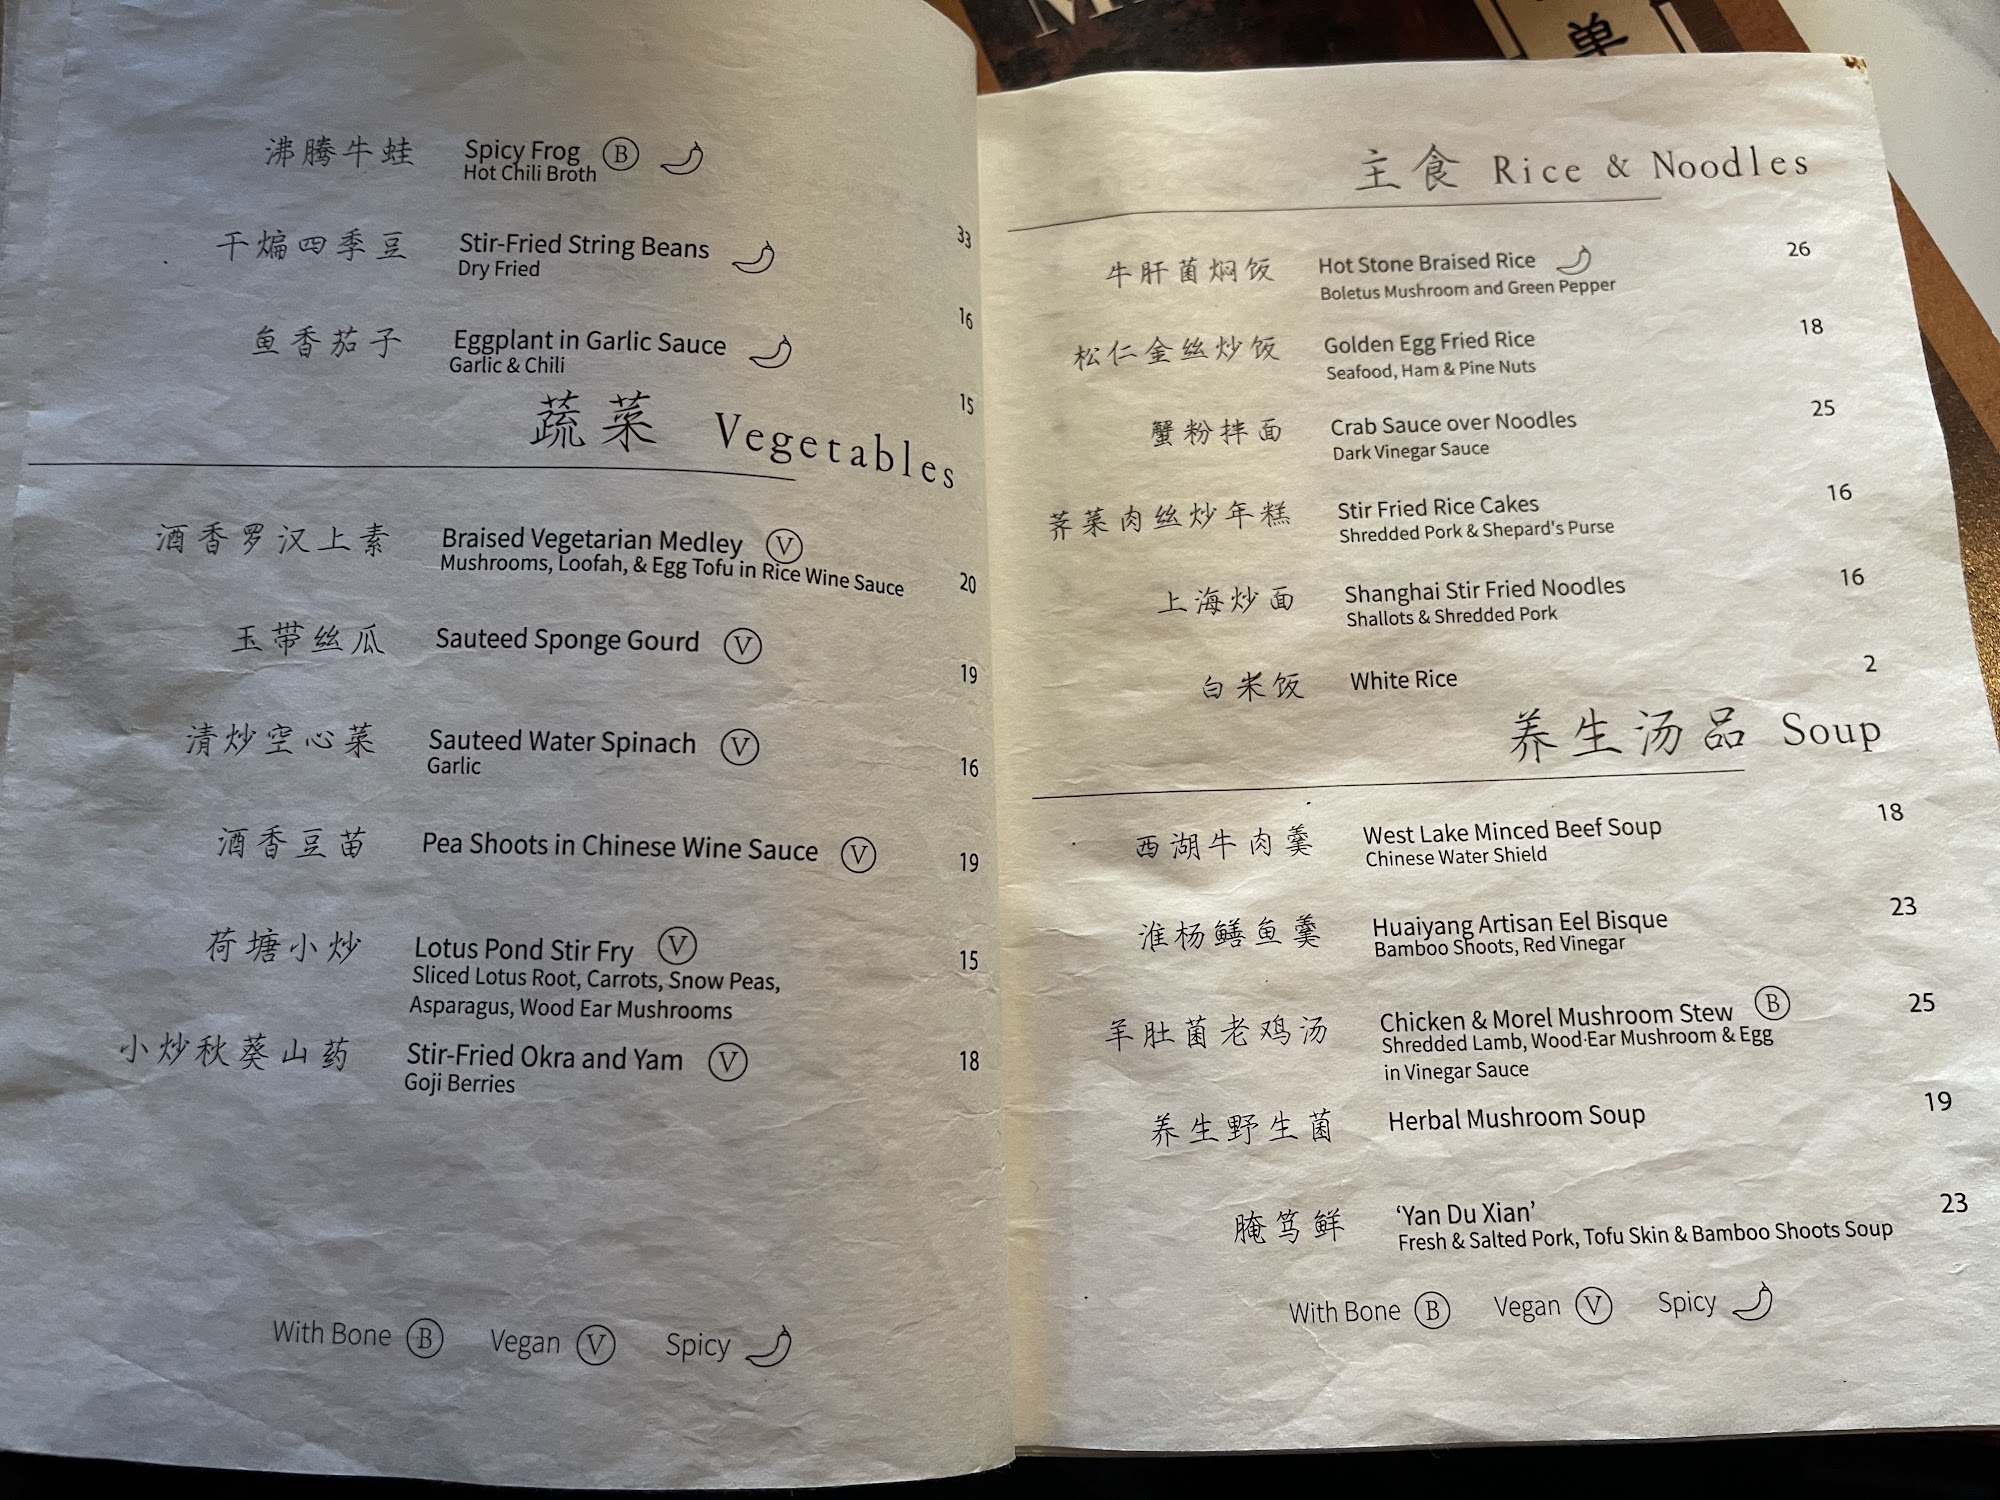 沸腾牛蛙 Spicy Frog B
Hot Chili Broth
33
干煸四季豆 Stir-Fried String Beans
Dry Fried
16
鱼香茄子 Eggplant in Garlic Sauce
Garlic & Chili
15
蔬菜 Vegetables
酒香罗汉上素 Braised Vegetarian Medley V
Mushrooms, Loofah, & Egg Tofu in Rice Wine Sauce 20
玉带丝瓜 Sauteed Sponge Gourd V
19
清炒空心菜 Sauteed Water Spinach V
Garlic 16
酒香豆苗 Pea Shoots in Chinese Wine Sauce V 19
荷塘小炒 Lotus Pond Stir Fry V 15
Sliced Lotus Root, Carrots, Snow Peas,
Asparagus, Wood Ear Mushrooms
小炒秋葵山药 Stir-Fried Okra and Yam V 18
Goji Berries
With Bone B Vegan V Spicy
单
主食 Rice & Noodles
牛肝菌焖饭 Hot Stone Braised Rice 26
Boletus Mushroom and Green Pepper
松仁金丝炒饭 Golden Egg Fried Rice 18
Seafood, Ham & Pine Nuts
蟹粉拌面 Crab Sauce over Noodles 25
Dark Vinegar Sauce
荠菜肉丝炒年糕 Stir Fried Rice Cakes 16
Shredded Pork & Shepard's Purse
上海炒面 Shanghai Stir Fried Noodles 16
Shallots & Shredded Pork
白米饭 White Rice 2
养生汤品 Soup
西湖牛肉羹 West Lake Minced Beef Soup 18
Chinese Water Shield
淮杨鳝鱼羹 Huaiyang Artisan Eel Bisque 23
Bamboo Shoots, Red Vinegar
羊肚菌老鸡汤 Chicken & Morel Mushroom Stew B 25
Shredded Lamb, Wood-Ear Mushroom & Egg
in Vinegar Sauce
养生野生菌 Herbal Mushroom Soup 19
腌笃鲜 ‘Yan Du Xian’ 23
Fresh & Salted Pork, Tofu Skin & Bamboo Shoots Soup
With Bone B Vegan V Spicy